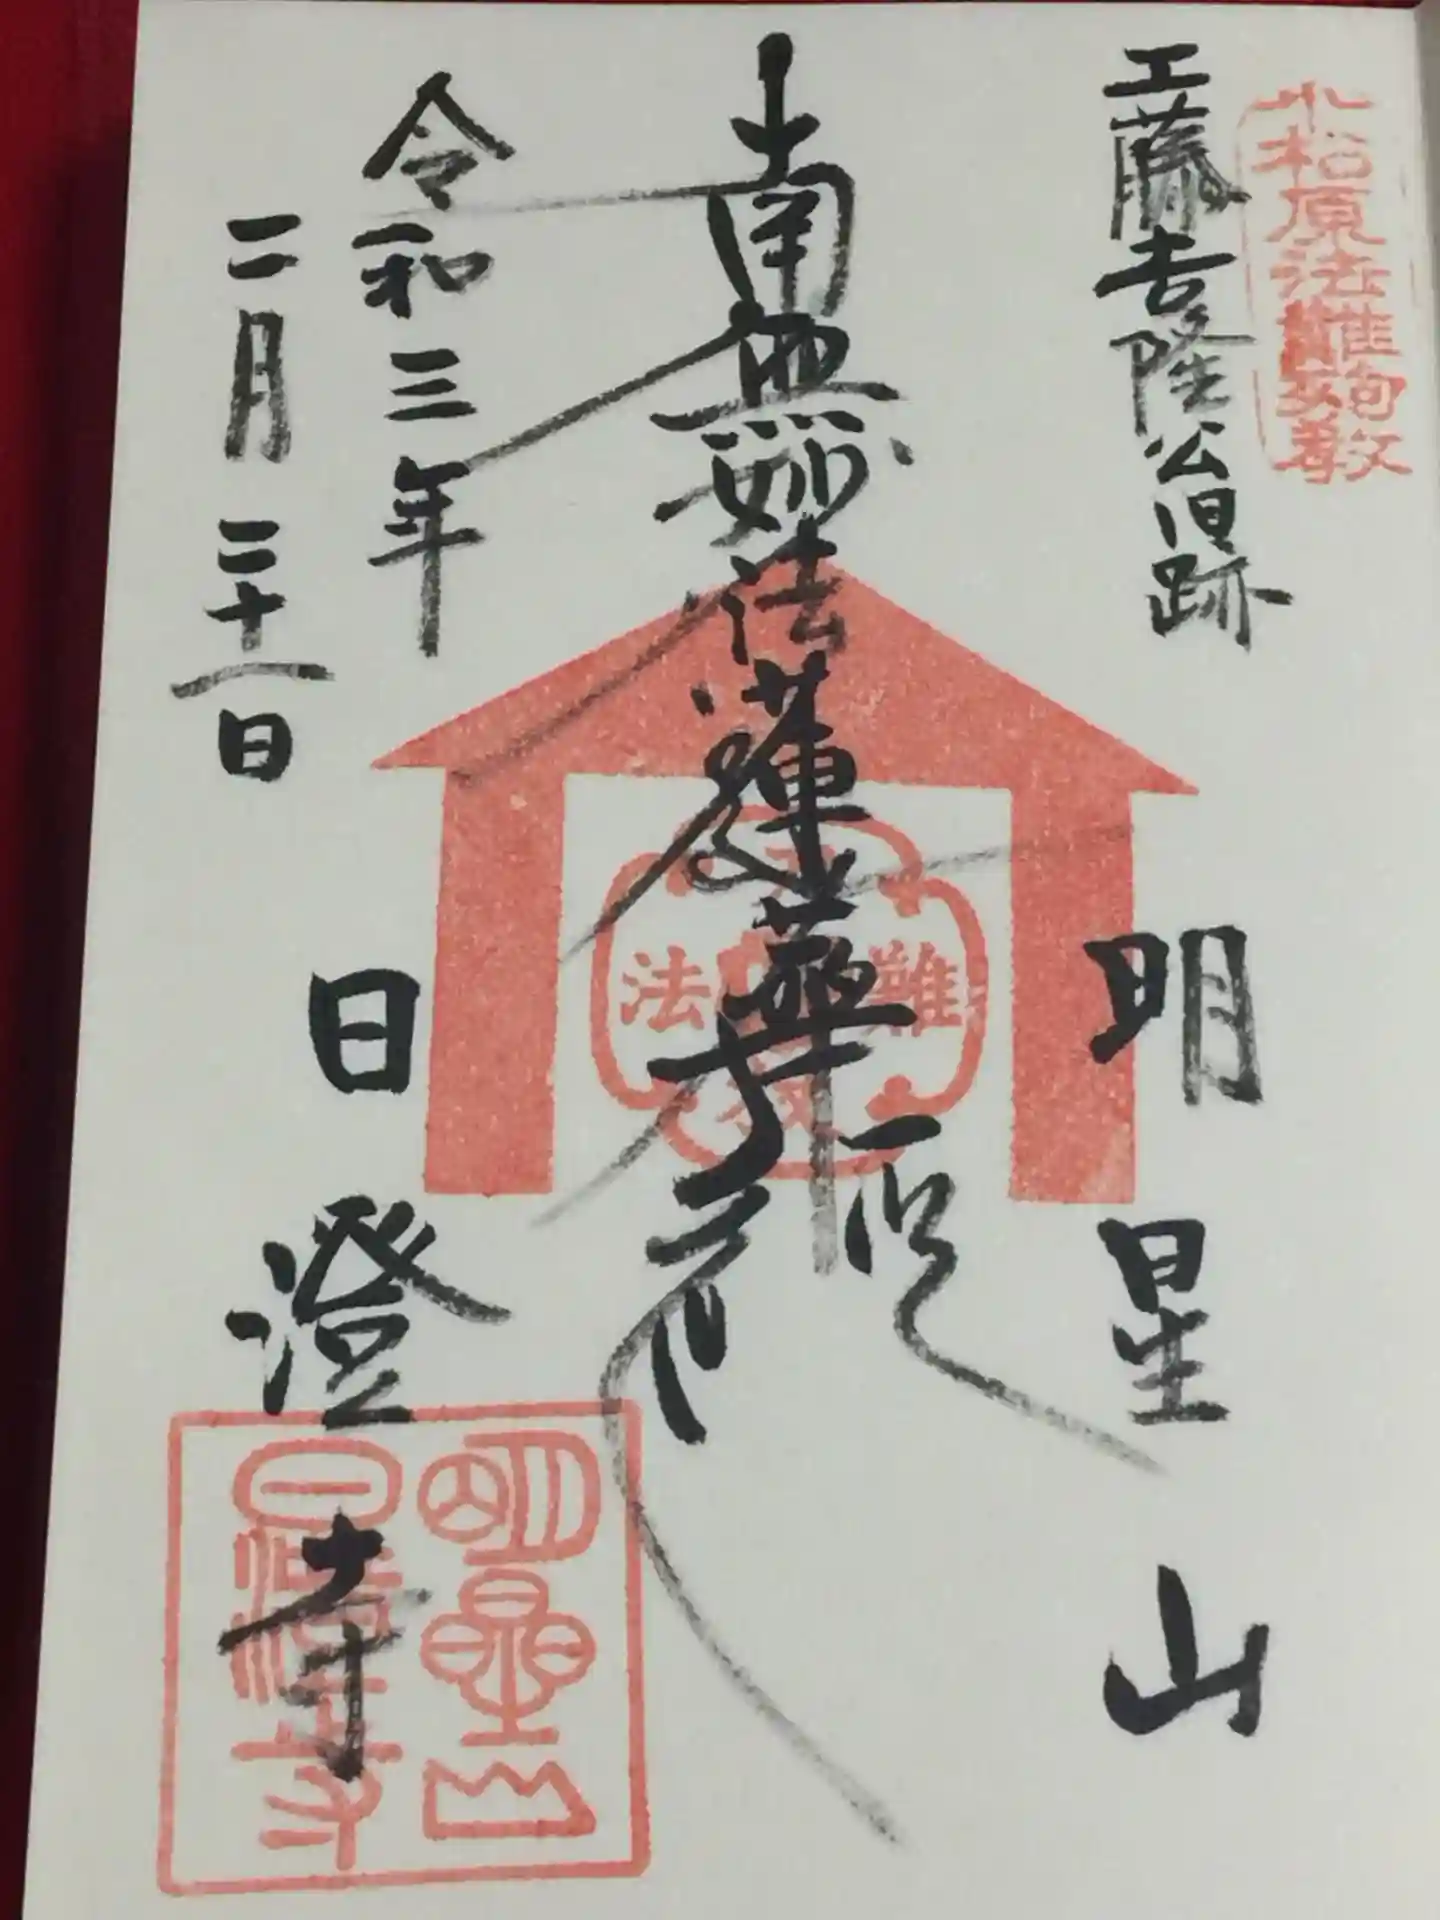 小松原法難殉教
工藤吉隆公旧跡
明星山
南無妙法蓮華経
法 難
令和三年
二月二十一日
日澄寺
明星山
日澄寺